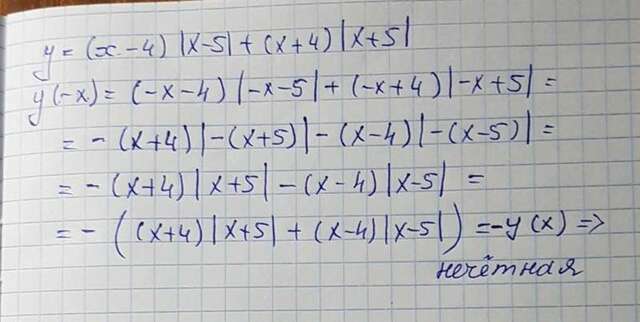 y = (x - 4) |x-5| + (x+4) |x+5|
y(-x) = (-x-4) |-x-5| + (-x+4) |-x+5| =
= - (x+4) |-(x+5)| - (x-4) |-(x-5)| =
= - (x+4) |x+5| - (x-4) |x-5| =
= - ((x+4) |x+5| + (x-4) |x-5|) = -y(x) =>
нечётная